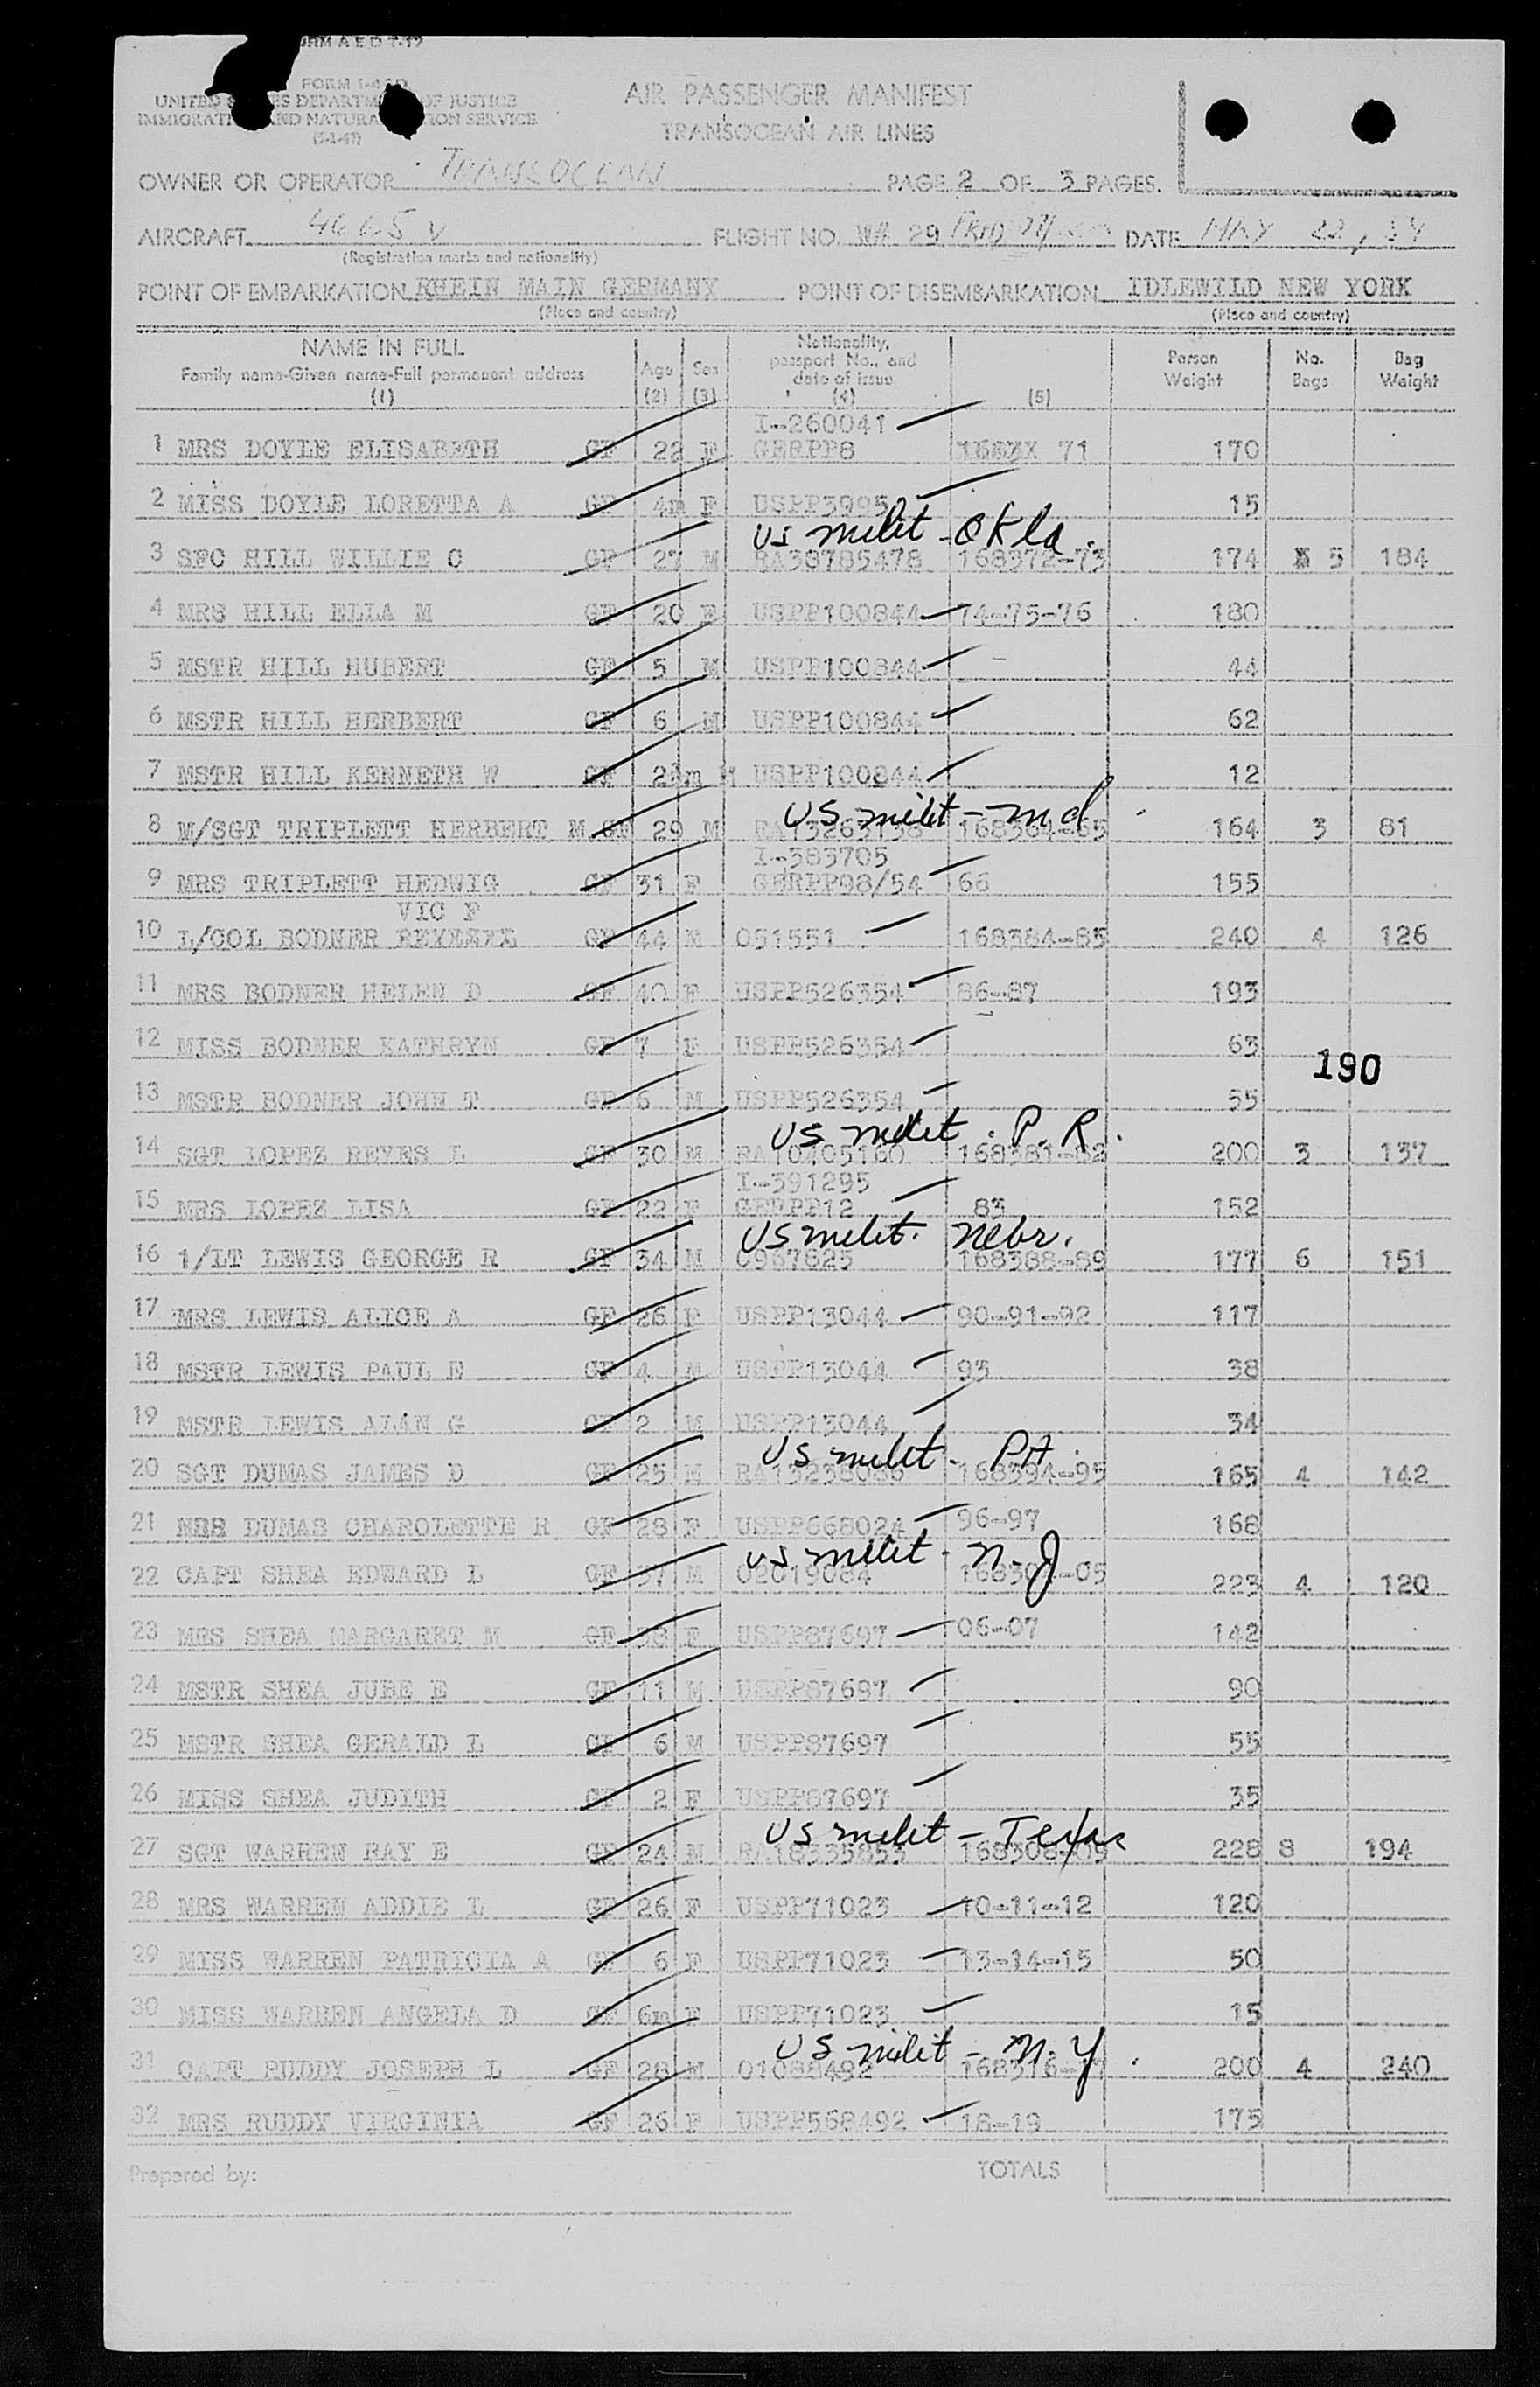 FORM A E D 7-17
FORM I-
UNITED STATES DEPARTMENT OF JUSTICE
IMMIGRATION AND NATURALIZATION SERVICE
AIR PASSENGER MANIFEST
TRANSOCEAN AIR LINES
OWNER OR OPERATOR TRANSOCEAN PAGE 2 OF 3 PAGES.
AIRCRAFT 4665 V FLIGHT NO. 29 DATE MAY 22, 54
(Registration marks and nationality)
POINT OF EMBARKATION RHEIN MAIN GERMANY POINT OF DISEMBARKATION IDLEWILD NEW YORK
(Place and country) (Place and country)
NAME IN FULL Family name-Given name-Full permanent address (1) Age (2) Sex (3) Nationality, passport No., and date of issue. (4) (5) Person Weight No. Bags Bag Weight
I-260041
1 MRS DOYLE ELISABETH GF 22 F GERPP8 71 170
2 MISS DOYLE LORETTA A GF 4m F USPP3995 15
US milit - Okla.
3 SFC HILL WILLIE C GF 27 M RA38785478 168372-73 174 5 184
4 MRS HILL ELLA M GF 20 F USPP100844 74-75-76 180
5 MSTR HILL HUBERT GF 5 M USPP100844 - 44
6 MSTR HILL HERBERT GF 6 M USPP100844 62
7 MSTR HILL KENNETH W GF M USPP100844 12
US milit - Md.
8 M/SGT TRIPLETT HERBERT M GF 29 M 164 3 81
I-383705
9 MRS TRIPLETT HEDWIG GF 31 F GERPP98/54 66 155
VIC F
10 L/COL BODNER GF 44 M 051551 168384-85 240 4 126
11 MRS BODNER HELEN D GF 40 F USPP526354 86-87 193
12 MISS BODNER KATHRYN GF 7 F USPP526354 63
190
13 MSTR BODNER JOHN T GF 6 M USPP526354 55
US milit. P.R.
14 SGT LOPEZ REYES L GF 30 M RA10405160 168381-82 200 3 137
I-391295
15 MRS LOPEZ LISA GF 22 F GERPP12 83 152
US milit. Nebr.
16 1/LT LEWIS GEORGE R GF 34 M 0967825 168388-89 177 6 151
17 MRS LEWIS ALICE A GF 26 F USPP13044 90-91-92 117
18 MSTR LEWIS PAUL E GF 4 M USPP13044 93 38
19 MSTR LEWIS ALAN G GF 2 M USPP13044 34
US milit - PA.
20 SGT DUMAS JAMES D GF 25 M 168394-95 165 4 142
21 MRS DUMAS CHAROLETTE R GF 28 F USPP668024 96-97 168
US milit - N.J
22 CAPT SHEA EDWARD L GF 37 M 02019084 223 4 120
23 MRS SHEA MARGARET M GF F USPP87697 06-07 142
24 MSTR SHEA JUBE E GF 11 M USPP87697 90
25 MSTR SHEA GERALD L GF 6 M USPP87697 55
26 MISS SHEA JUDITH GF 2 F USPP87697 35
US milit - Texas
27 SGT WARREN RAY E GF 24 M RA18335853 168308-09 228 8 194
28 MRS WARREN ADDIE L GF 26 F USPP71023 10-11-12 120
29 MISS WARREN PATRICIA A GF 6 F USPP71023 13-14-15 50
30 MISS WARREN ANGELA D GF 6m F USPP71023 15
US milit - N.Y.
31 CAPT RUDDY JOSEPH L GF 28 M 01088492 200 4 240
32 MRS RUDDY VIRGINIA GF 26 F USPP568492 18-19 175
Prepared by: TOTALS